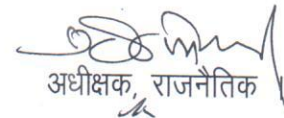 अधीक्षक, राजनैतिक